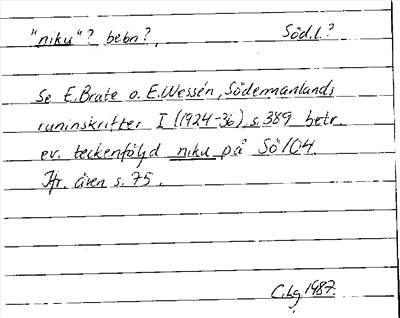 "niku"? bebn?, Söd.l.?
Se E. Brate o. E. Wessén, Södermanlands
runinskrifter I (1924-36) s. 389 betr.
ev. teckenföljd niku på Sö 104.
Jfr. även s. 75.
C. Lg 1987.